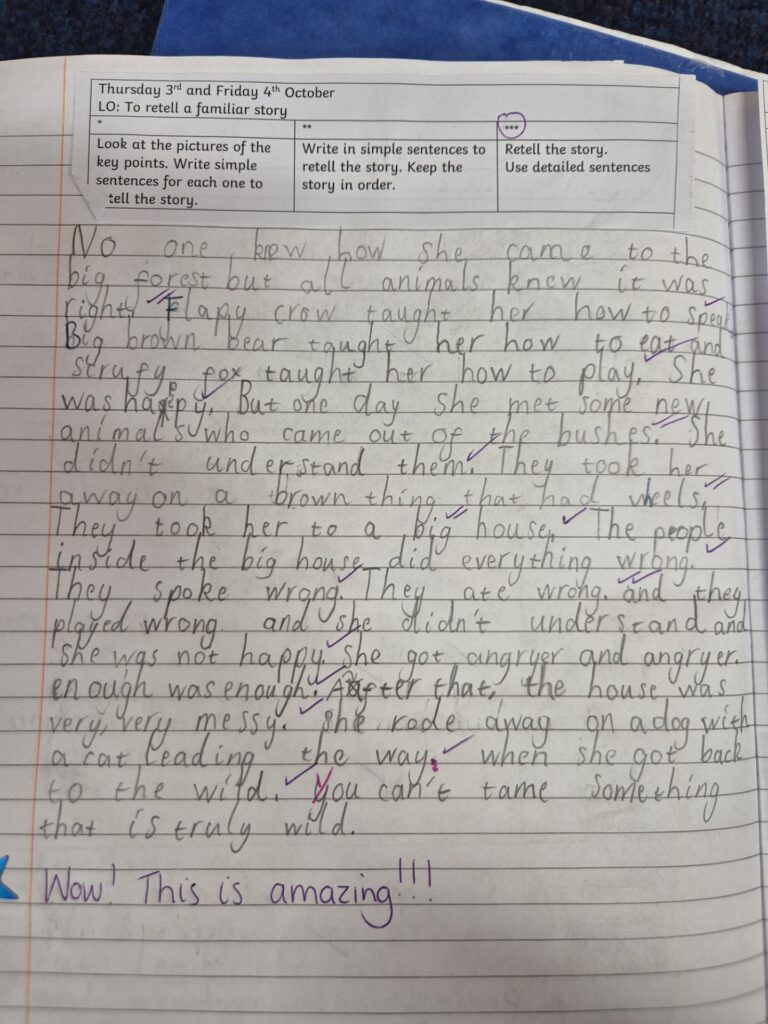 Thursday 3rd and Friday 4th October
LO: To retell a familiar story
*
Look at the pictures of the
key points. Write simple
sentences for each one to
tell the story.
**
Write in simple sentences to
retell the story. Keep the
story in order.
***
Retell the story.
Use detailed sentences
No one knew how she came to the
big forest but all animals knew it was
right. Flapy crow taught her how to speak
Big brown bear taught her how to eat and
scrufy fox taught her how to play. She
was happy. But one day she met some new
animal's who came out of the bushes. She
didn't understand them. They took her
away on a brown thing that had wheels.
They took her to a big house. The people
inside the big house did everything wrong.
They spoke wrong. They ate wrong. and they
played wrong and she didn't understand and
she was not happy. She got angryer and angryer.
enough was enough! After that, the house was
very, very messy. She rode away on a dog with
a cat leading the way. when she got back
to the wild. You can't tame something
that is truly wild.
Wow! This is amazing!!!